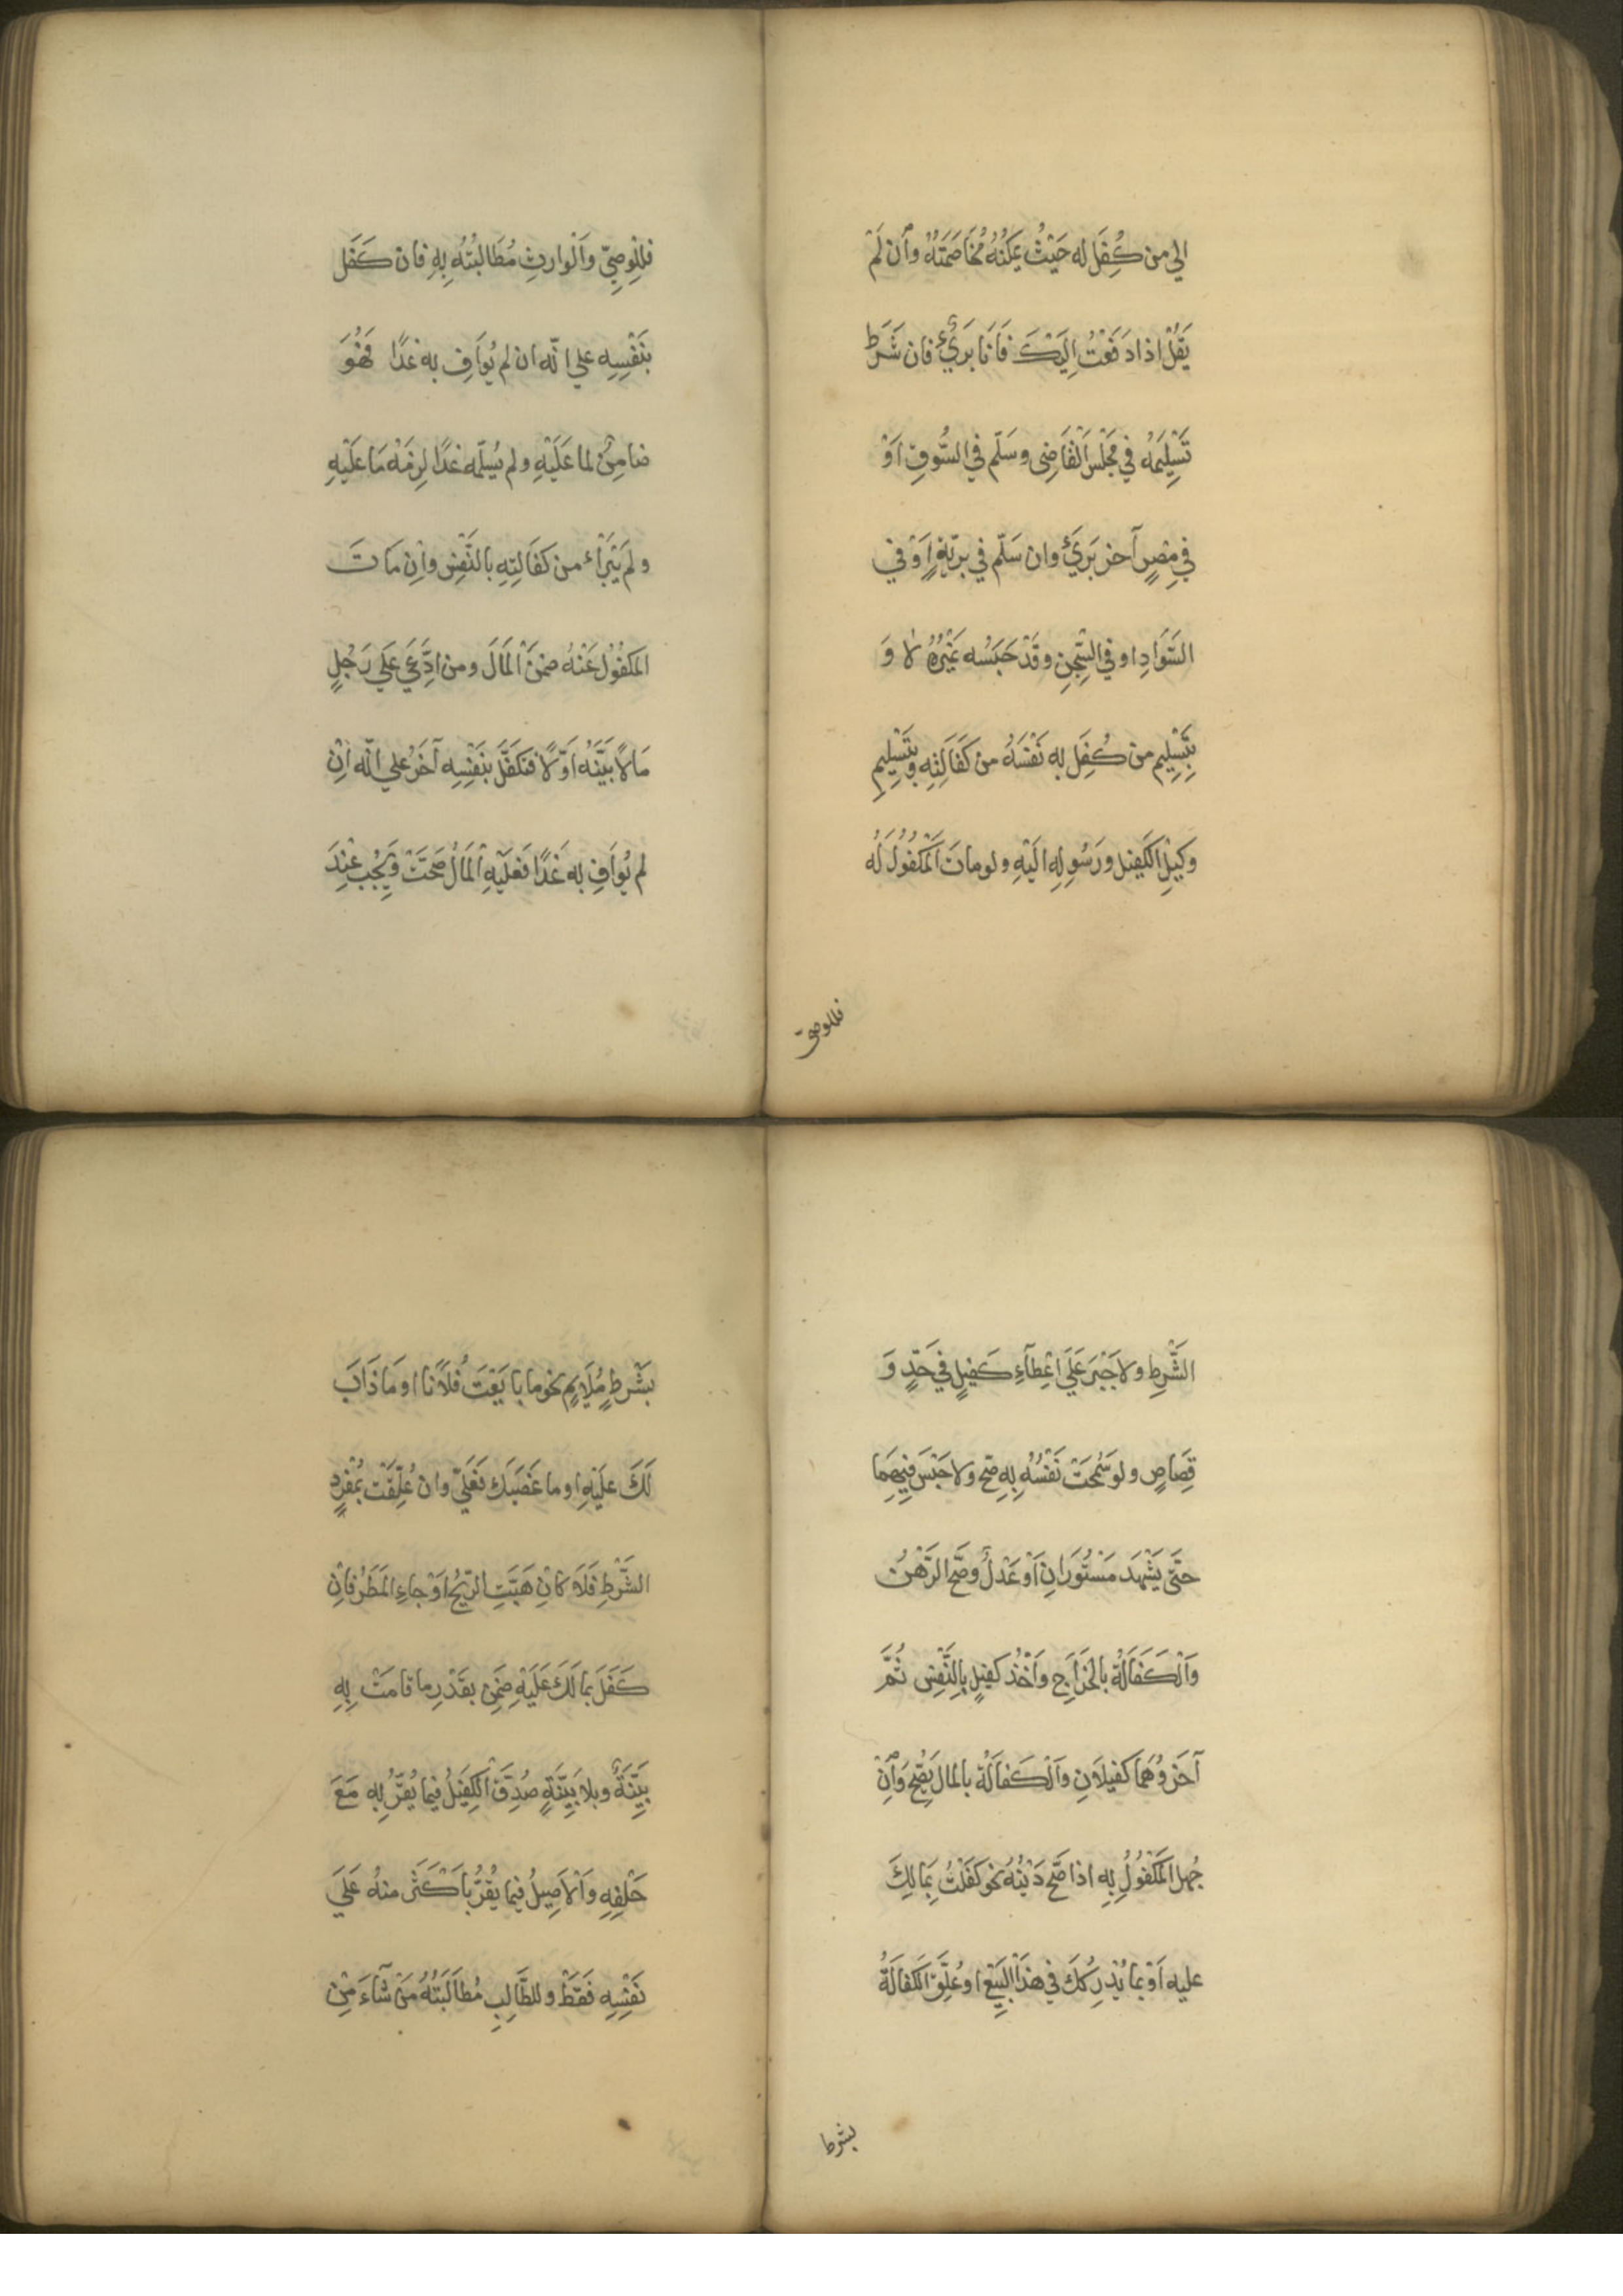 الي من كُفِلَ له حَيْثُ يمكنُهُ مُخَاصَمَتَهُ وأن لَمْ
يَقُلْ اذا دَفعْتُ اِلَيْكَ فَاَنَا بَرَيْءٌ فان شَرَطَ
تَسْلِيْمَهُ في مَجْلسِ اَلْقَاضِى وسَلّم في السُّوقِ اَوْ
في مِصْرٍ آخر بَرَيَ وان سَلّم في برّيّةٍ اَوْ في
السَّوَادِ او في السِّجْنِ وقَدْ حَبَسُه غَيْرُهُ لا وَ
بِتَسْلِيمِ من كُفِلَ به نَفْسَهُ من كَفَالِتِهِ وبِتَسْلِيمِ
وكيْلِ الكَفِيْل ورَسُولِهِ اليْهِ ولو ماتَ اَلْمَكْفُولُ لَهُ
فللوصيّ
فللْوصِيّ وَاَلْوارِثِ مُطَالبُتُهُ بِهِ فان كَفَل
بَنَفْسِهِ علي انّه ان لم يُوَافِ به غدًا فهُوَ
ضامِنٌ لما عَلَيْهِ ولم يُسلّمه غدًا لزِمَهْ مَا عَلَيْهِ
ولَم يَبْرَأ من كَفَالتِهِ بالنَّفْسِ واِن مَاتَ
المَكْفُوُل عَنْهُ ضمنَ اْلمَالَ ومن ادَّعَيَ عَلَي رَجُلٍ
مَالاً بَيَّنَهُ اَوّلاً فتكَفَّلَ بنَفْسِهِ آخَرُ علي انّه اِنْ
لم يُوَافِ به غَدًا فعَلَيْهِ اْلمَالُ صَحَتَ وَيَجُب عنْدَ
الشَّرطِ ولا جَبْرَ عَلَي اعْطَآءِ كَفيلٍ في حَدٍّ وَ
قِصَاصٍ ولو سَمُحَتْ نَفْسُهُ بِهِ صّح ولا حَبْسَ فيْهِمَا
حتَّى يَشْهَدَ مَسْتُورَانِ اَوْ عَدْلٌ وصَحَّ الرّهْنُ
وَاْلكَفَالَةُ بالخَرَاجِ وَاَخْذُ كفيْلٍ بِالنَّفْسِ ثُمَّ
آخَرُ وَهُمَا كفيلَانِ وَاْلكفَالَةُ بالمالِ يَصِّحُ وَاِنْ
جُهل اَلمَكْفُوُلُ بِه اذا صَّح دَيْنُهُ نحو كَفَلْتُ بِمَا لَكَ
عليه اَوْ بما يُدْرِكُكَ في هذا البَيْع او عُلِّقَ الكفالَةُ
بشرط
بَشرْطٍ مُلَايِمٍ نحو ما بايَعْتَ فُلَاناً او مَا ذَابَ
لَكَ علَيْهِ او ما غَصَبَك فعَلَيَّ وان عُلِّقَتْ بمُفْرَدِ
الشَّرْطِ فَلَا كان هَبَّتِ الرّيحُ اَوْ جاءِ المَطَرُ فاِن
كَفَلَ بما لَكَ عَلَيْهِ ضَمِنَ بقَدْرِ ما قامَتْ بِهِ
بيّنَةٌ وبلا بَيِّنَةٍ صُدِقَ الكَفِيْلُ فيما يُقرُّ بِهِ مَعَ
حَلْفِهِ واَلْأَصِيلُ فيما يقُرُّ باَكثَرَ منهُ عَلَي
نَفْسِهِ فَقَطْ وللطَّالِبِ مُطاَلَبَتُهُ مَنْ شَآءَ مِنْ